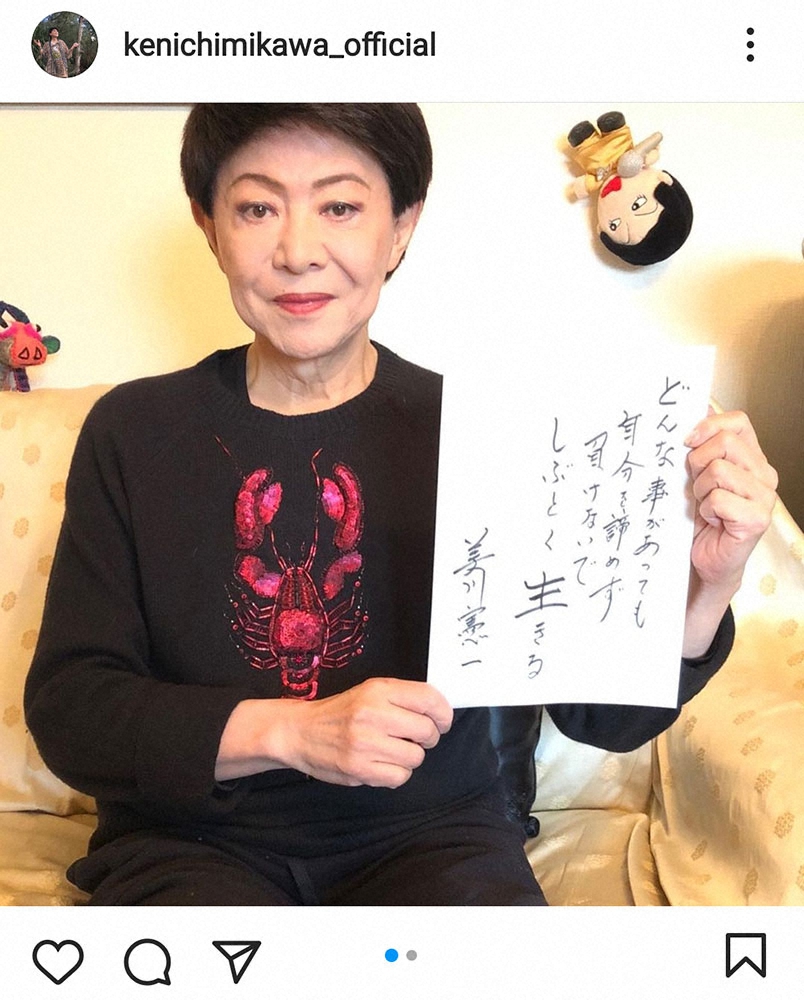 kenichimikawa_official
どんな事があっても
自分を諦めず
負けないで
しぶとく生きる
美川憲一